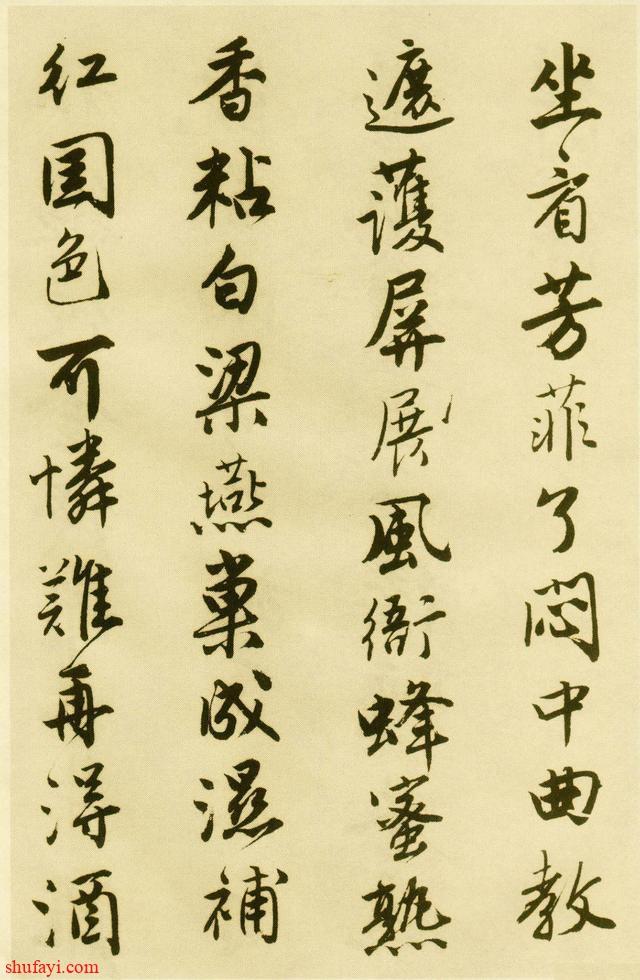 坐看芳菲了悶中曲教
遮護屏展風衙蜂蜜熟
香粘白梁燕巢成濕補
紅國色可憐難再得酒
shufayi.com